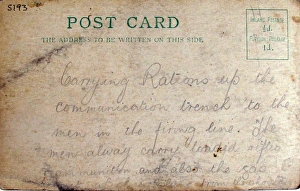 5193
POST CARD
THE ADDRESS TO BE WRITTEN ON THIS SIDE.
INLAND POSTAGE
½d.
1d.
Carrying Rations up the
communication trench to the
men in the firing line. The
men always
and also the gas